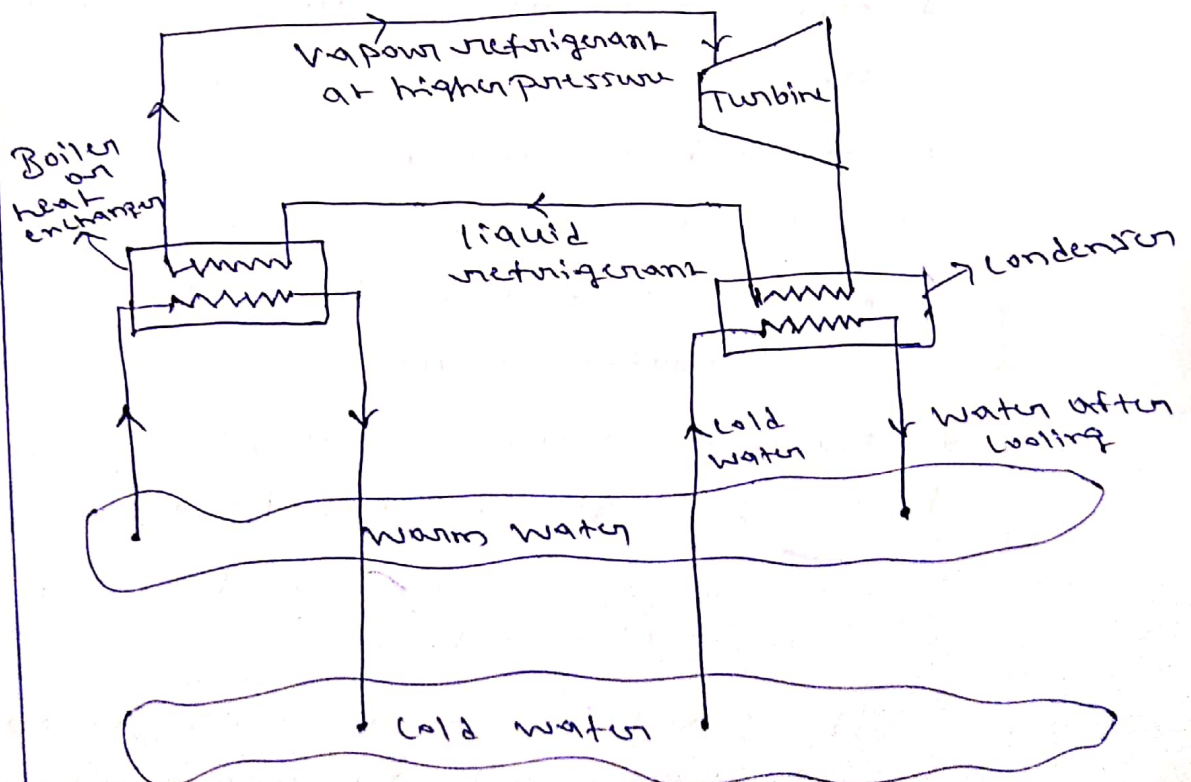 Vapour refrigerant
at higher pressure
Turbine
Boiler
or
heat
exchanger
liquid
refrigerant
condenser
cold
water
Water after
cooling
Warm water
Cold water